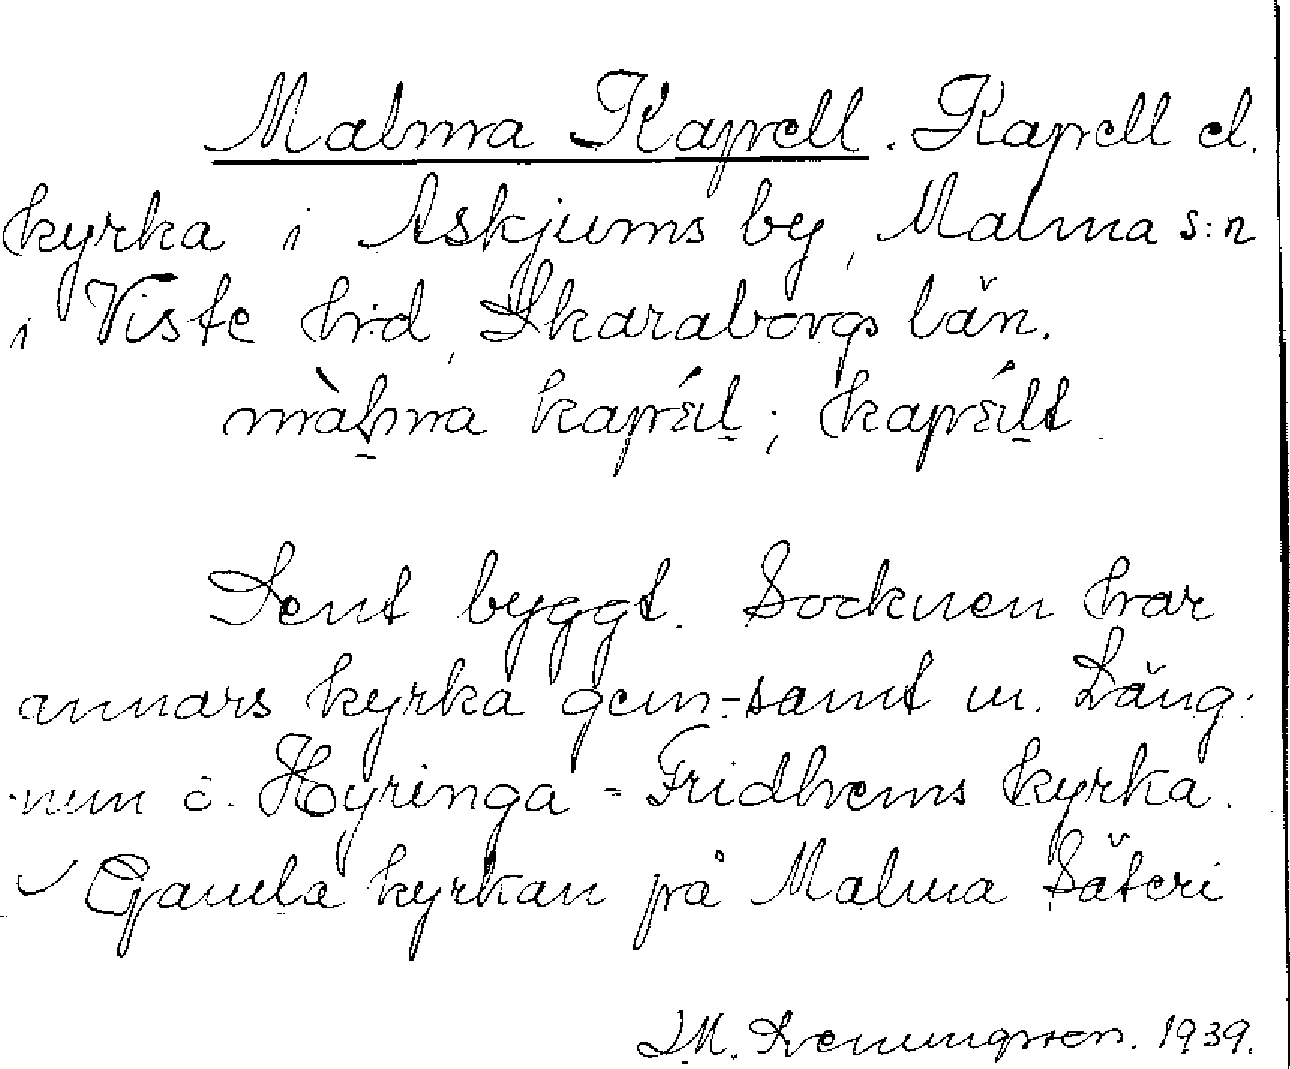 Malma Kapell. Kapell el.
kyrka i Askjums by, Malma s:n
i Viste hrd, Skaraborgs län.
màḷma kapéıl̠; kapéıl̠t.
Sent byggt. Socknen har
annars kyrka gem.-samt m. Läng-
-num o. Hyringa - Fridhems kyrka.
Gamla kyrkan på Malma Säteri
1939.